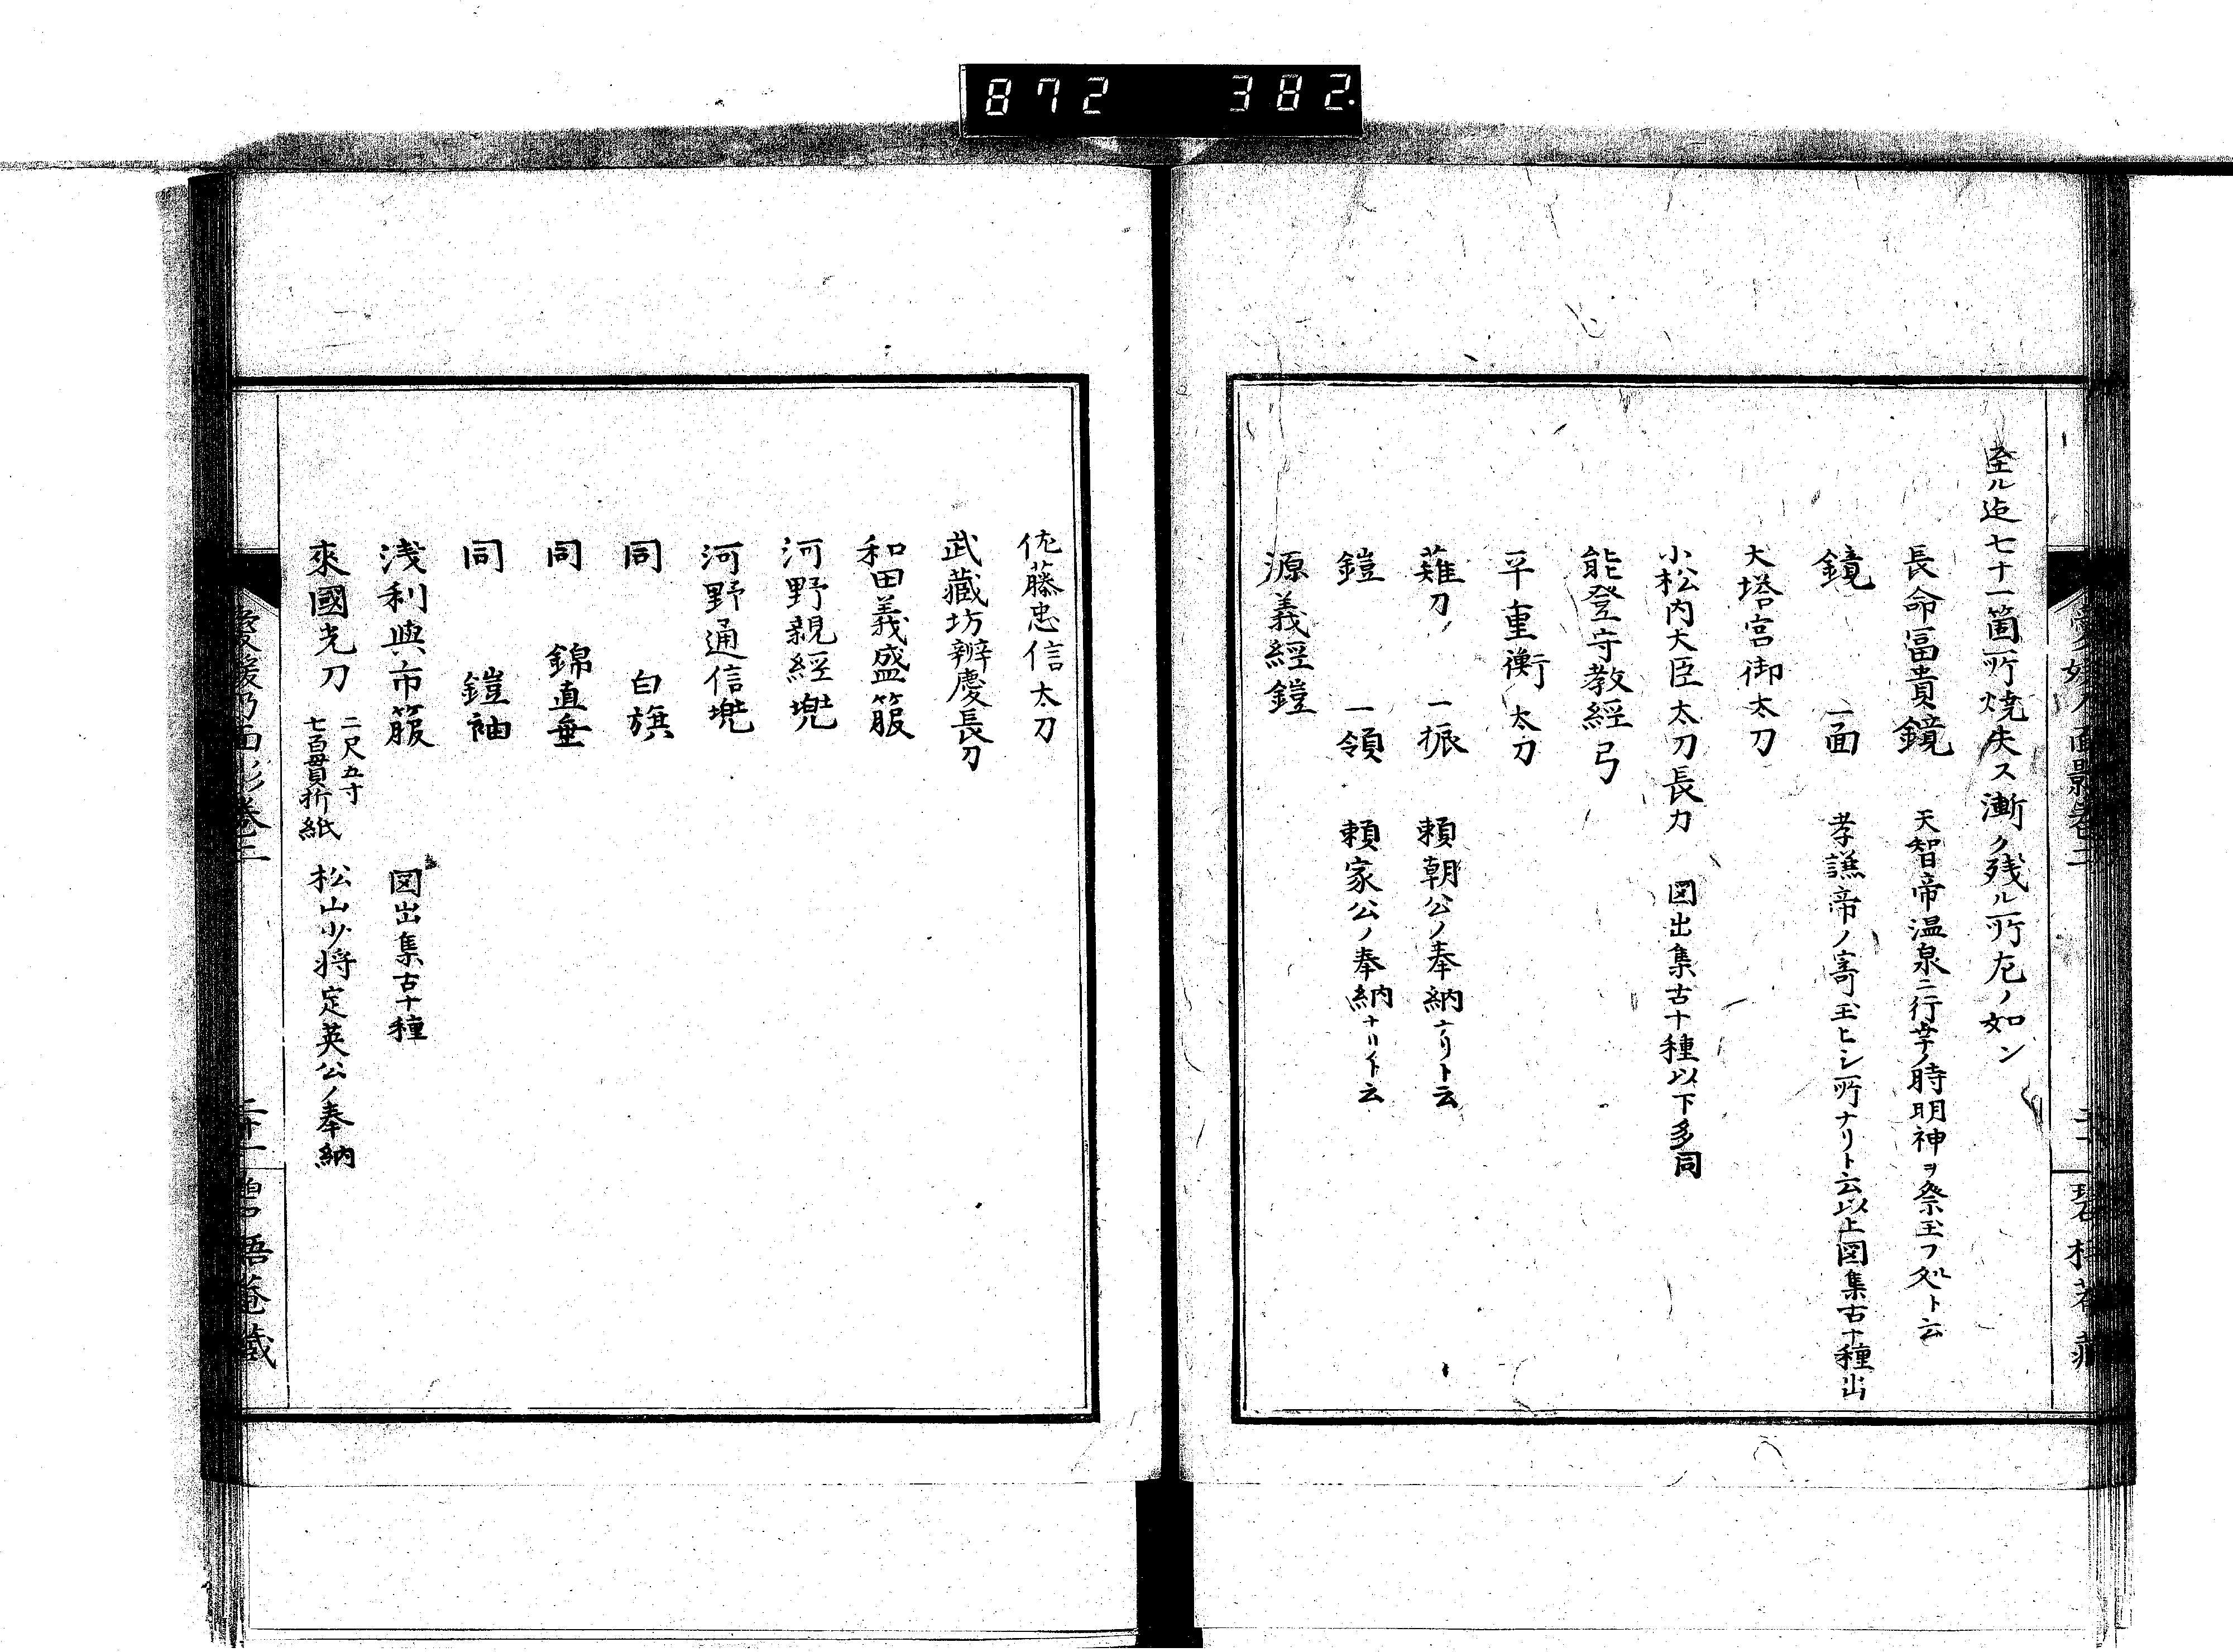 872 382
至ル迄七十一箇所焼失ス漸ク残ル所左ノ如シ
長命冨貴鏡 天智帝温泉ニ行幸ノ時明神ヲ祭玉フ処ト云
鏡 一面 孝謙帝ノ寄玉ヒシ所ナリト云以上図集古十種出
大塔宮御太刀
小松内大臣太刀長刀 図出集古十種以下多同
能登守教經弓
平重衡太刀
薙刀 一振 頼朝公ノ奉納ナリト云
鎧 一領 頼家公ノ奉納ナリト云
源義經鎧
佐藤忠信太刀
武藏坊辨慶長刀
和田義盛箙
河野親經兜
河野通信兜
同 白旗
同 錦直垂
同 鎧袖
浅利與市箙 図出集古十種
來國光刀 二尺五寸
七百貫折紙 松山少将定英公ノ奉納
愛媛乃面影巻二
二十一